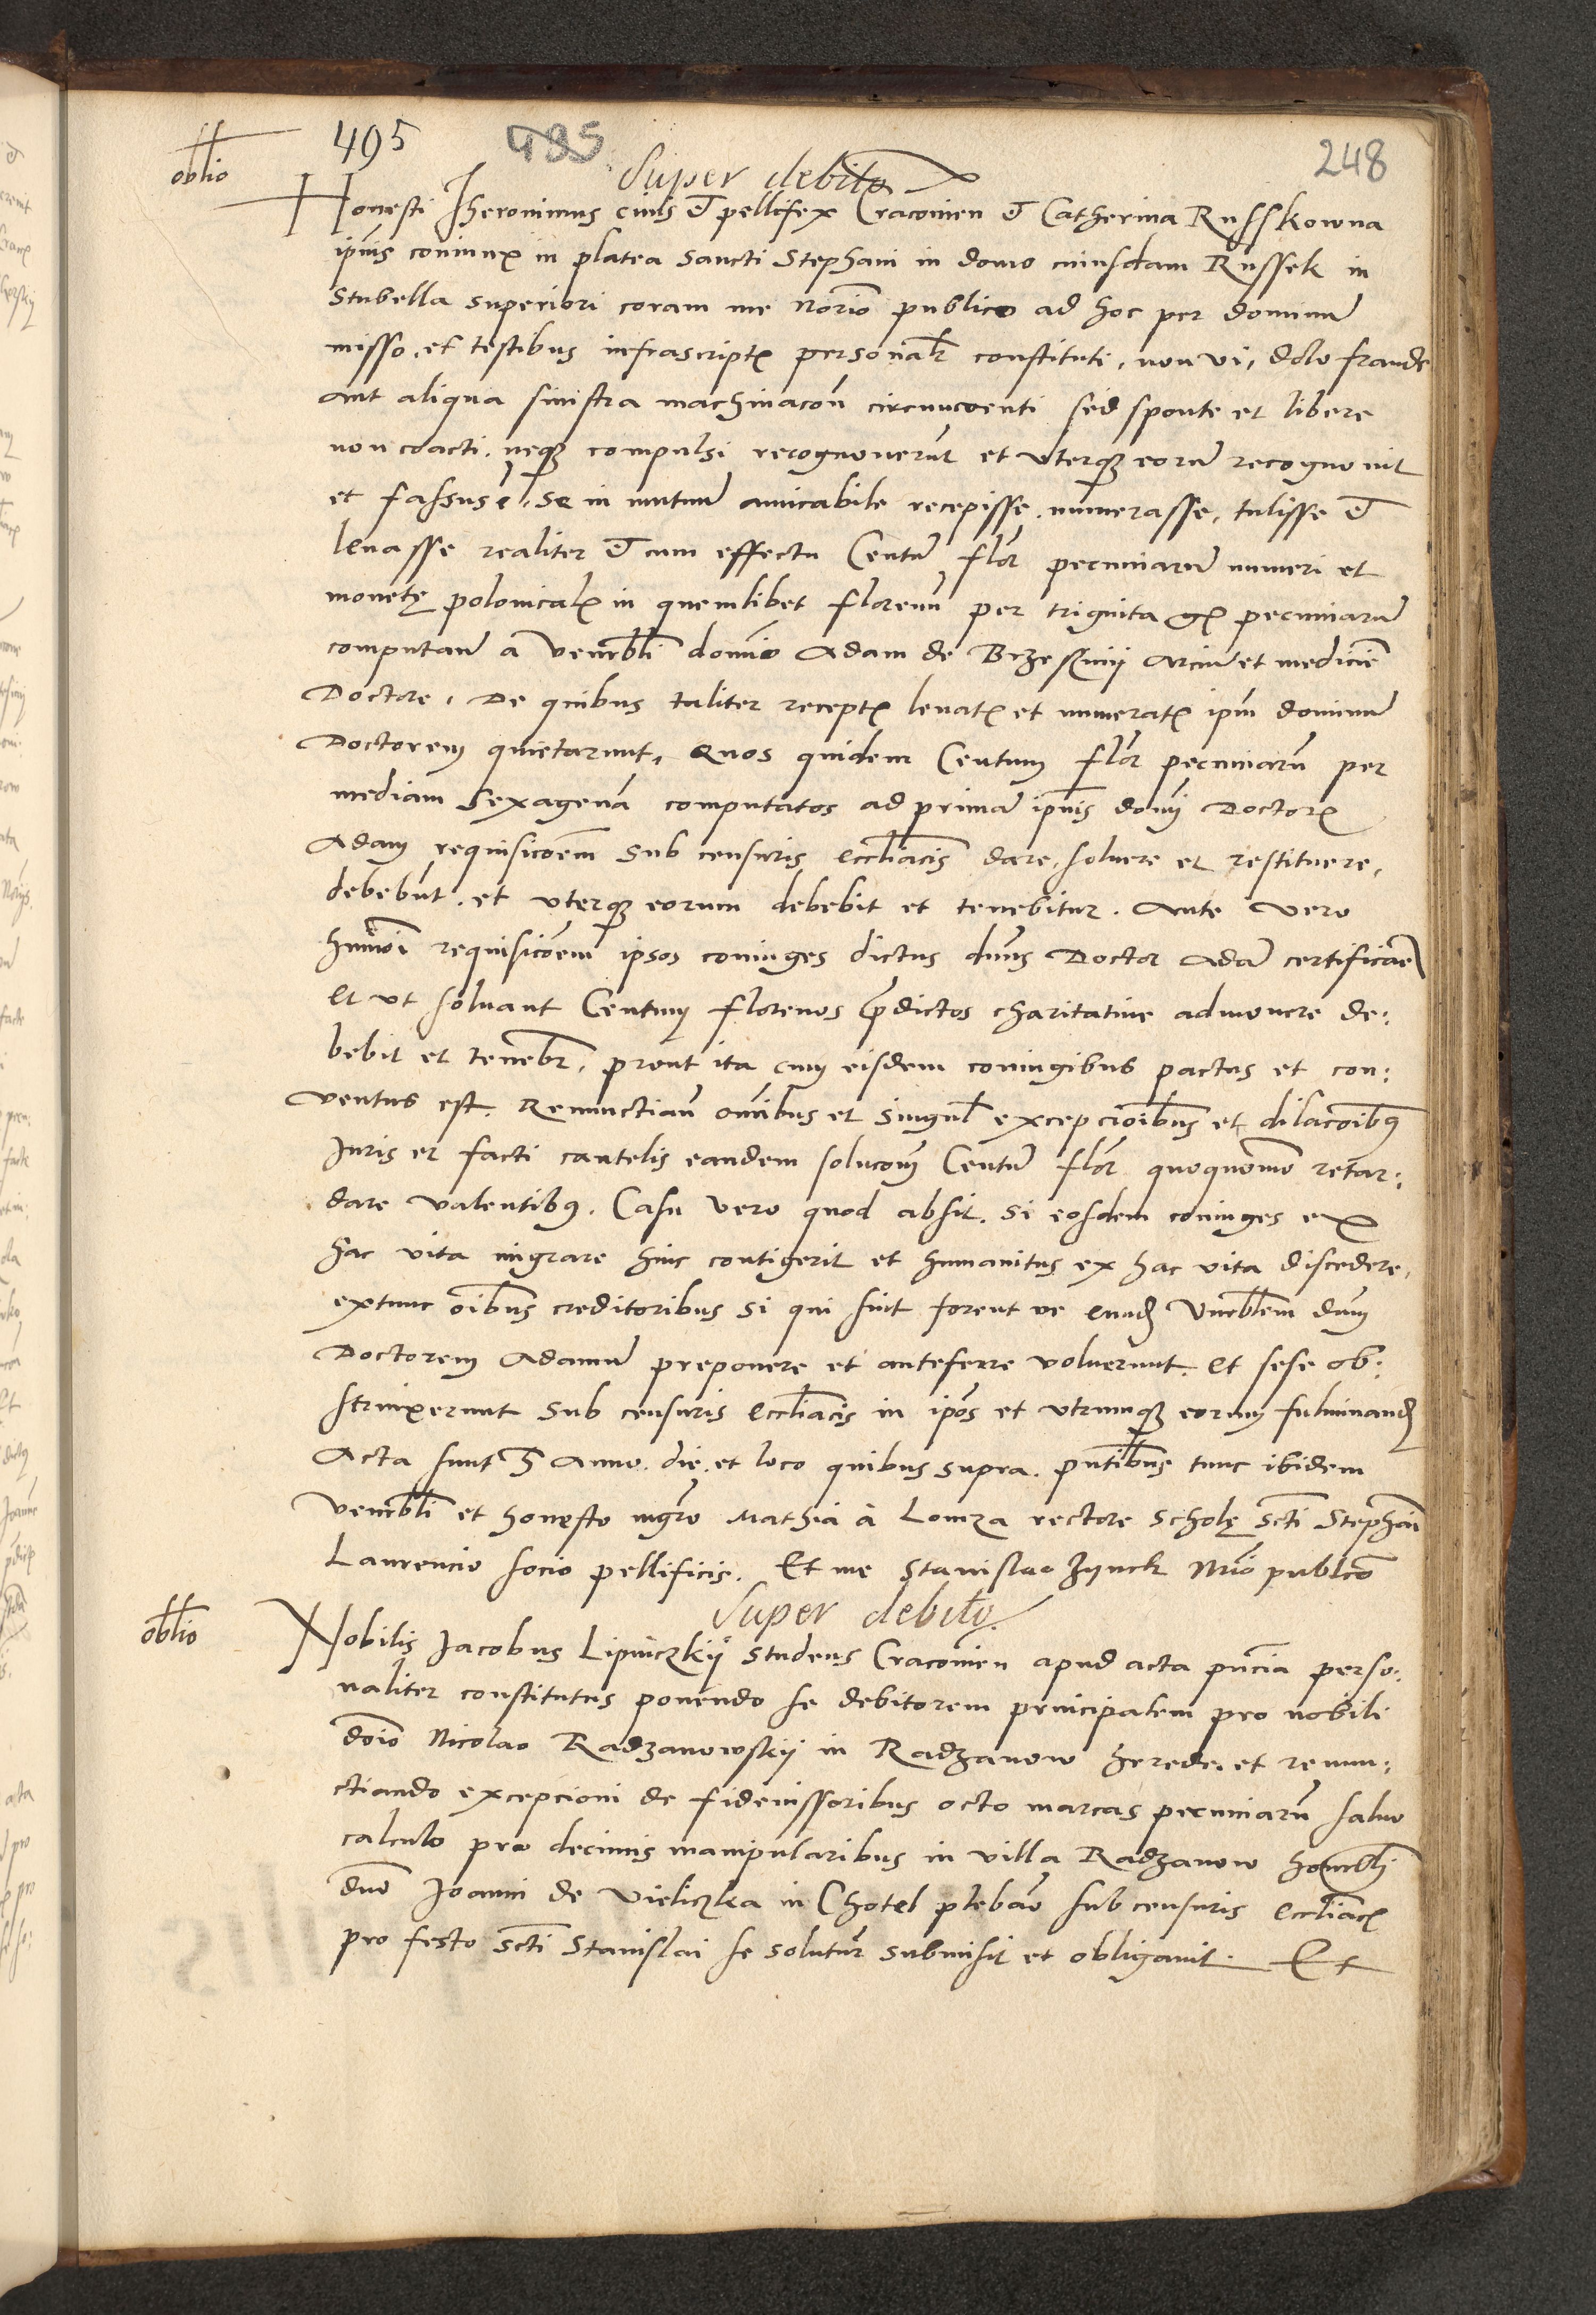 495 485 248
oblio
Super debito
Honesti Iheronimus civis et pellifex Cracovien et Catherina Russkowna
ipius coniunx in platea Sancti Stephani in domo cuiusdam Russek in
Stubella superiori coram me norio publico ad hoc per dominum
misso, et testibus infrascriptis personalr constituti, non vi, dolo fraude
aut aliqua sinistra machinacon circumventi sed sponte et libere
non coacti, neque compulsi recognoverunt et uterque eorum recognovit
et fassus e, se in mutuum amicabile recepisse, numerasse, tulisse et
levasse realiter et cum effectu Centum flor pecuniarum numeri et
monetę polonicalis in quemlibet florenum per triginta gr pecuniarum
computan a Venerbli domino Adam de Brzeſiny arcium et medicine
Doctore, De quibus taliter receptis levatis et numeratis ipm dominum
Doctorem quietarunt, Quos quidem Centum flor pecuniarum per
mediam Sexagenam computatos ad primam ipius domi Doctoris
Adam requisicoem sub censuris eccliacis dare, solvere et restituere,
debebunt, et uterque eorum debebit et tenebitur. Ante vero
huiusmoi requisicoem ipsos coniuges dictus dnus Doctor Adam certificare
et ut solvant Centum florenos predictos charitative admonere de:
bebit et tenebr, prout ita cum eisdem coniugibus pactus et con:
ventus est. Renunctian omnibus et singul excepcioibus et dilacoibus
Iuris et facti cautelis eandem solucom Centum flor quoquomo retar:
dare valentibus. Casu vero quod absit, si eosdem coniuges ex
hac vita migrare hinc contigerit et humanitus ex hac vita discedere,
extunc oibus creditoribus si qui sint forent ve eund Venerblem dnum
Doctorem Adamum preponere et anteferre voluerunt. et sese ob:
strinxerunt sub censuris eccliacis in ipos et utrumque eorum fulminand
Acta sunt hec Anno, die, et loco quibus supra. pntibus tunc ibidem
venerbli et honesto mgro Mathia a Lomza rectore scholę Scti Stephani
Laurencio socio pellificis. Et me Stanislao Zynck Norio publico
Super debito.
oblio
Nobilis Jacobus Lipniczkÿ studens Cracovien apud acta pncia perso:
naliter constitutus ponendo se debitorem principalem pro nobili
domo Nicolao Radzanowskÿ in Radzanow herede, et renun:
ctiando excepcioni de fideiussoribus octo marcas pecuniarum salvo
calculo pro decimis manipularibus in villa Radzanow honorabli
dno Joanni de Vieliczka in Chotel plebano sub censuris eccliacis
pro festo Scti Stanislai se soluturum submisit et obligavit. Et